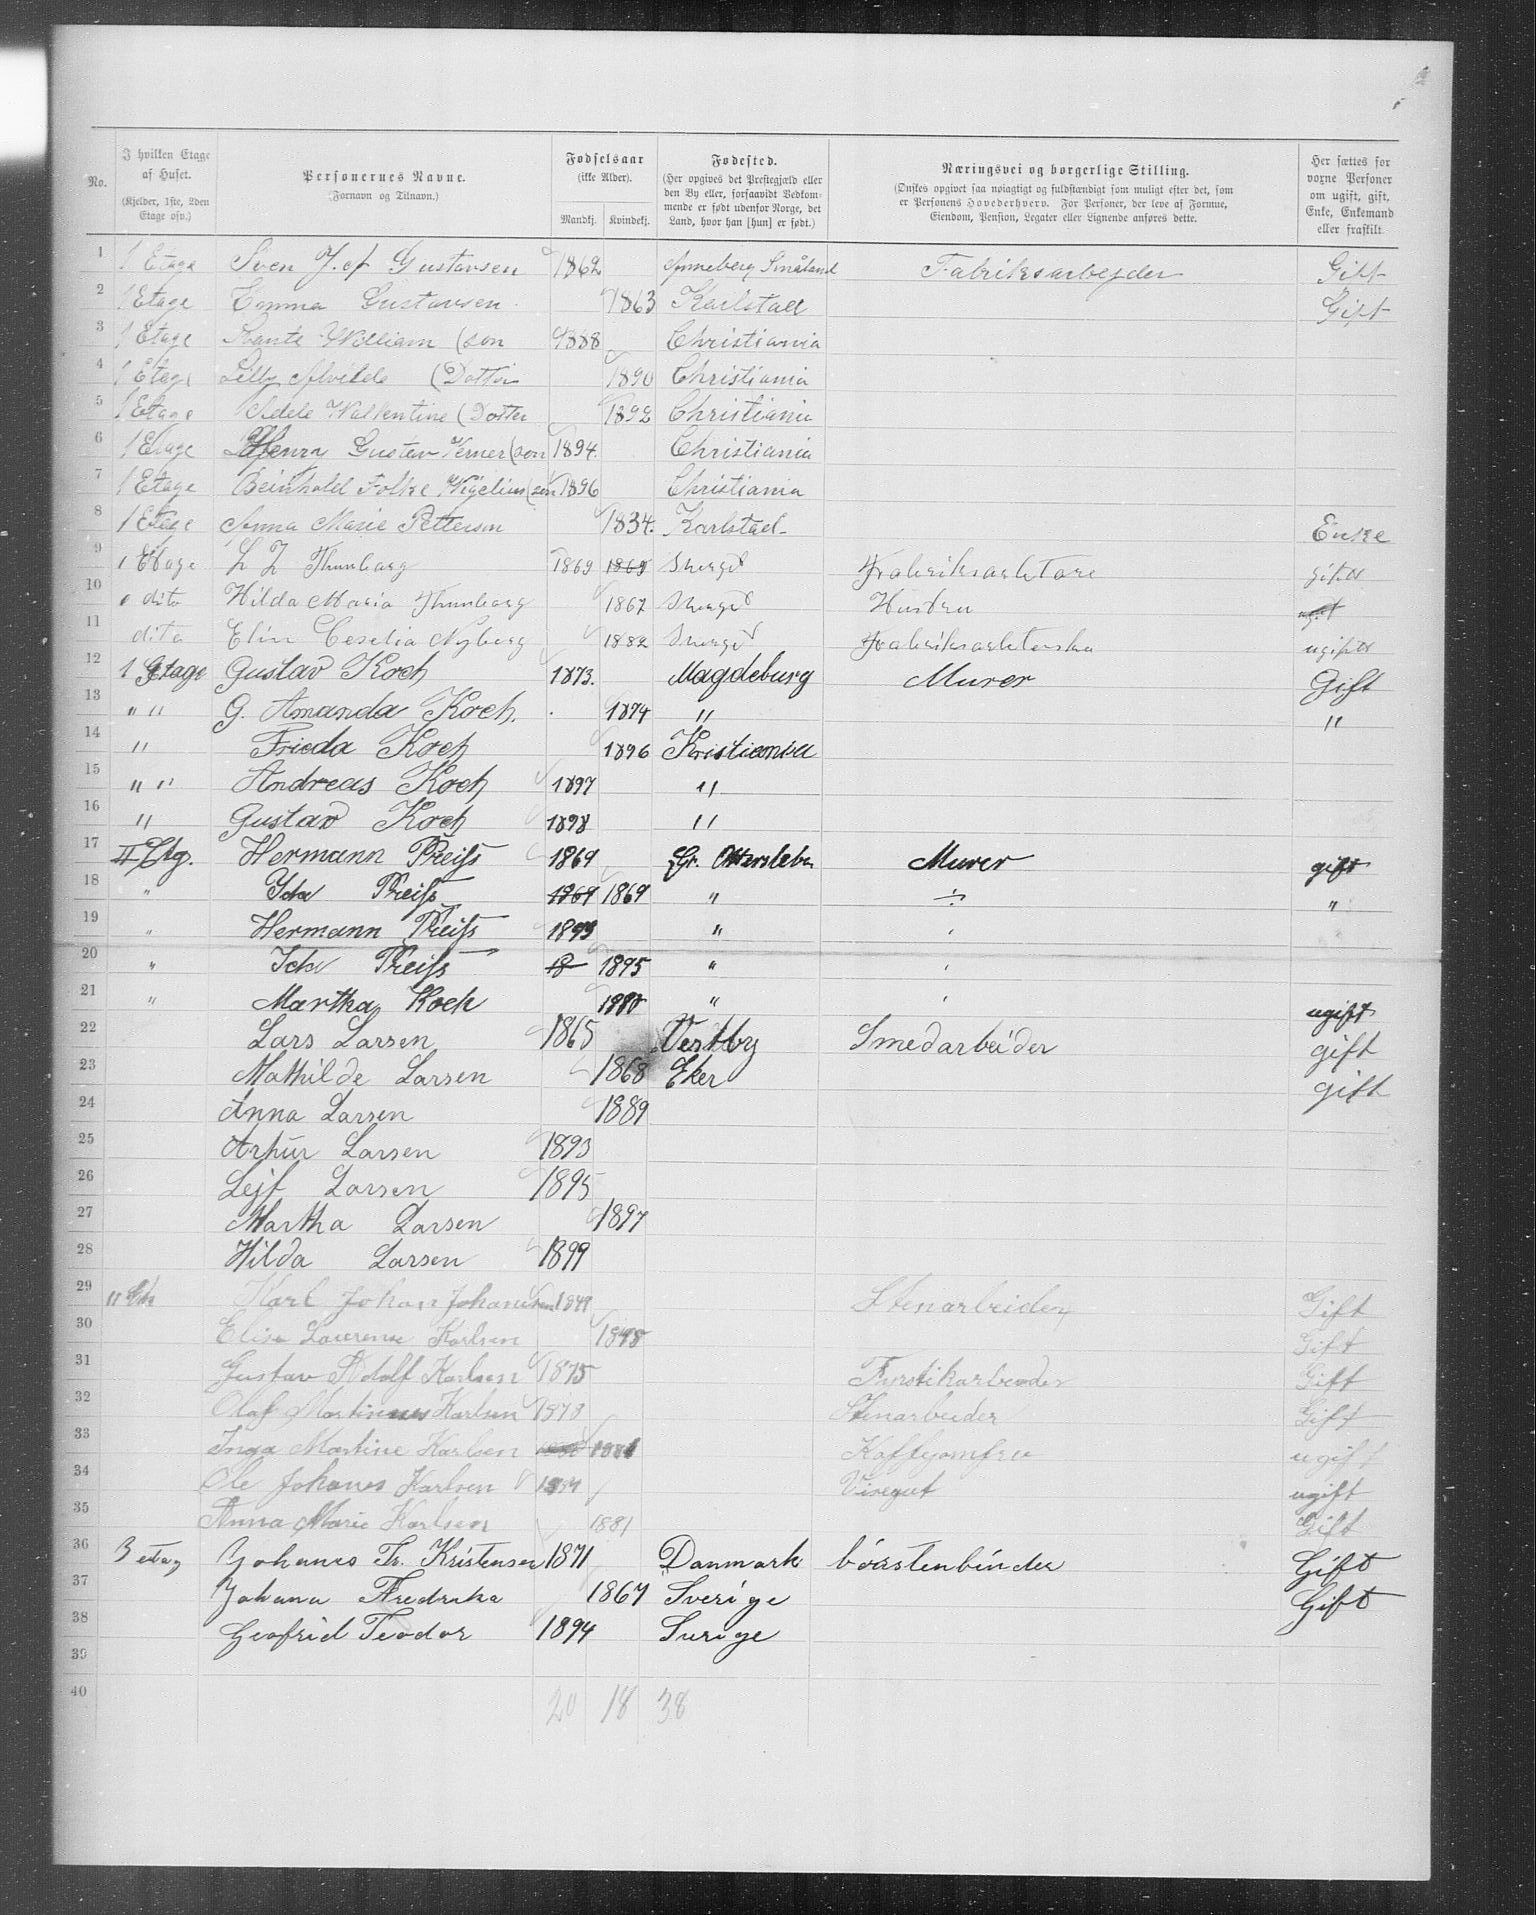 No. I hvilken Etage af Huset. (Kjelder, 1ste, 2den Etage osv.) Personernes Navne. (Fornavn og Tilnavn.) Fødselsaar (ikke Alder). Mandkj. Kvindekj. Fødested. (Her opgives det Prestegjæld eller den By eller, forsaavidt Vedkommende er født udenfor Norge, det Land, hvor han [hun] er født.) Næringsvei og borgerlige Stilling. (Ønskes opgivet saa nøiagtigt og fuldstændigt som muligt efter det, som er Personens Hovederhverv. For Personer, der leve af Formue, Eiendom, Pension, Legater eller Lignende anføres dette. Her sættes for voxne Personer om ugift, gift, Enke, Enkemand eller fraskilt.
1 1 Etage Sven J. Gustavsen 1862 Anneberg Småland Fabriksarbejder Gift
2 1 Etage Emma Gustavsen 1863 Karlstad Gift
3 1 Etage William (son 1888 Christiania
4 1 Etage Lilly Alvilde (Dotter 1890 Christiania
5 1 Etage Adele Wallentine (Dotter 1892 Christiania
6 1 Etage Henry Gustav Verner (son 1894. Christiania
7 1 Etage Reinhold Folke Vigelius (son 1896 Christiania
8 1 Etage Anna Marie Petterson 1834. Karlstad Enke
9 1 Etage L Z Thunborg 1869 1865 Sverge Frabriksarbetare giftd
10 1 dito Hilda Maria Thunborg 1867 Sverge Hustru ugift
11 dito Elin Ceselia Nyberg 1882 Sverge Frabriksarbeterska ugiftd
12 1 Etage Gustav Koch 1873. Magdeburg Murer Gift
13 " " G. Amanda Koch. 1874 " "
14 " Frieda Koch 1896 Kristiania
15 " " Andreas Koch 1897 "
16 " Gustav Koch 1898 "
17 II Etg. Hermann Preiss 1864 Gr. Ottersleben Murer gift
18 " Ida Preiss 1869 1869 " ÷ "
19 " Hermann Preiss 1893 "
20 " Ida Preiss 18 1895 "
21 " Martha Koch 1880 " ugift
22 Lars Larsen 1865 Vestby Smedarbeider gift
23 Mathilde Larsen 1868 Eker gift
24 Anna Larsen 1889
25 Arthur Larsen 1893
26 Lejf Larsen 1895
27 Martha Larsen 1897
28 Hilda Larsen 1899
29 " Karl Johan Johannesen 1849 Stenarbeider Gift
30 Elise Laurense Karlsen 1848 Gift
31 Gustav Adolf Karlsen 1875 Fyrstikarbeder Gift
32 Olaf Martinus Karlsen 1878 Stenarbeider Gift
33 Inga Martine Karlsen Kaffejomfru ugift
34 Ole Johanes Karlsen 1884 Visegut ugift
35 Anna Marie Karlsen 1881 Gift
36 3 etag Johanes Fr. Kristensen 1871 Danmark börstenbinder Gift
37 Johana Fredrike 1867 Sverige Gift
38 Geofrid Teodor 1894 Sverige
39
40 20 18 38